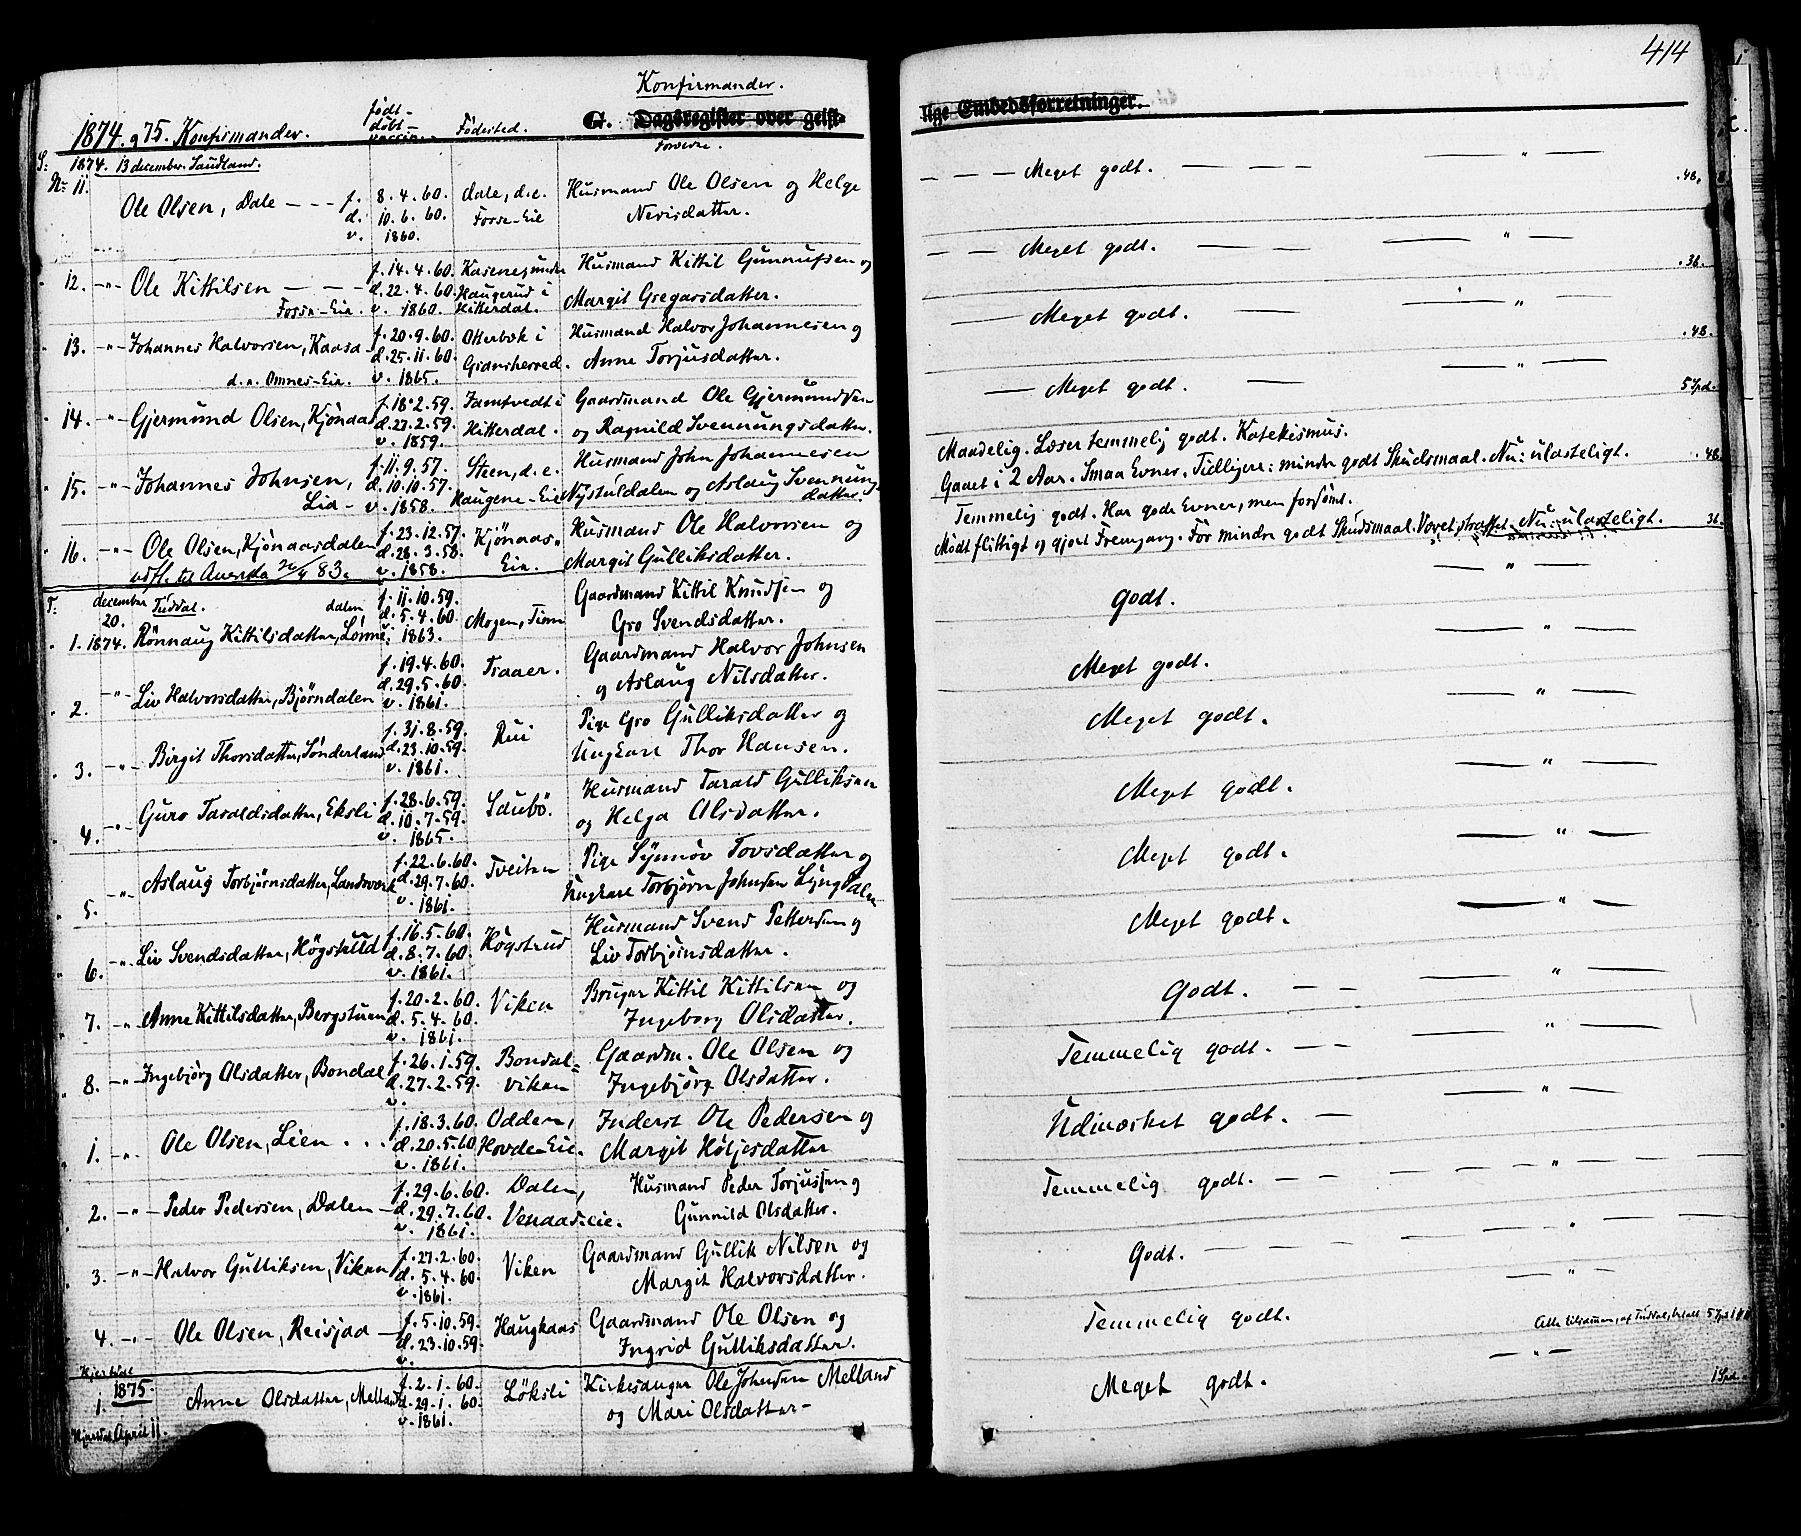 414
Konfirmander.
1874 og 75. Konfirmander.
født
døbt
vaccin.
Fødested.
G. Dagsregister over geist-
lige Embedsforretninger.
S: 1874. 13 december. Sauland.
No 11. Ole Olsen, Dale f. 8.4.60. Dale, d.e. Husmand Ole Olsen og Helge — Meget godt. — " — .48.
d. 10.6.60. Fosse-Eie Nerisdatter.
v. 1860.
12. -"- Ole Kittilsen f. 14.4.60. Husmand Kittil Gunnufsen og — Meget godt. — " — .36.
d. 22.4.60. Haugerud i Margit Gregarsdatter.
Fosse-Eie. v. 1860. Hitterdal.
13. -"- Johannes Halvorsen, Kaasa f. 20.9.60. Otterbæk i Husmand Halvor Johannesen og — Meget godt. — " — .48.
d. 25.11.60. Gransherred. Anne Torjusdatter.
d.e. Omnes-Eie. v. 1865.
14. -"- Gjermund Olsen, Kjönaas f. 18.2.59. Tamtvedt i Gaardmand Ole Gjermundsen — Meget godt. — " — 5 Spd.
d. 27.2.59. Hitterdal. og Ragnild Svennungsdatter.
v. 1859.
15. -"- Johannes Johnsen, f. 11.9.57. Steen, d.e. Husmand John Johannesen Maadelig. Læser temmelig godt. Katekismus.
Lia d. 10.10.57. Haugene-Eie Nystuldalen og Aslaug Svennungs Gaaet i 2 Aar. Smaa Evner. Tidligere: mindre godt Skudsmaal. Nu: ulasteligt. .48.
v. 1858. datter.
16. -"- Ole Olsen, Kjönaasdalen f. 23.12.57. Kjönaas- Husmand Ole Halvorsen og Temmelig godt. Har gode Evner, men forsömt.
d. 28.3.58. Eie. Margit Gulliksdatter. Mödt flittigt og gjort Fremgang. För mindre godt Skudsmaal. Været straffet. Nu: ulasteligt. 36.
udfl. til Amerika 83. v. 1858.
T: december Tuddal. dalen f. 11.10.59. Gaardmand Kittil Knudsen og Godt. — " —
20. d. 5.4.60. Mogen, Tinn Gro Svendsdatter.
1. 1874. Rönnaug Kittilsdatter, Lönne v. 1863.
2. -"- Liv Halvorsdatter, Bjørndalen f. 19.4.60. Traaer. Gaardmand Halvor Johnsen Meget godt. — " —
d. 29.5.60. og Aslaug Nilsdatter.
v. 1861.
3. -"- Birgit Thorsdatter, Sönderland f. 31.8.59. Rui Pige Gro Gulliksdatter og Meget godt. — " —
d. 23.10.59. Ungkarl Thor Hansen.
v. 1861.
4. -"- Guro Taraldsdatter, Eksli f. 28.6.59. Saubö. Husmand Tarald Gulliksen Meget godt. — " —
d. 10.7.59. og Helga Olsdatter.
v. 1865.
5. -"- Aslaug Torbjørnsdatter, Landsverk f. 22.6.60. Tveiten Pige Synnöv Tovsdatter og Meget godt. — " —
d. 29.7.60. Ungkarl Torbjörn Johnsen Lyngdalen
v. 1861.
6. -"- Liv Svendsdatter, Högstuld f. 16.5.60. Högstrud Husmand Svend Pettersen og Meget godt. — " —
d. 8.7.60. Liv Torbjørnsdatter.
v. 1861.
7. -"- Anne Kittilsdatter, Bergstuen f. 20.2.60. Viken Bruger Kittil Kittilsen og Godt. — " —
d. 5.4.60. Ingeborg Olsdatter.
v. 1861.
8. -"- Ingebjörg Olsdatter, Bondal f. 26.1.59. Bondal- Gaardm. Ole Olsen og Temmelig godt. — " —
d. 27.2.59. viken Ingebjörg Olsdatter.
v.
1. -"- Ole Olsen, Lien f. 18.3.60. Odden, Inderst Ole Pedersen og Udmærket godt. — " —
d. 20.5.60 Hovde-Eie. Margit Höljesdatter
v. 1861.
2. -"- Peder Pedersen, Dalen f. 29.6.60. Dalen, Husmand Peder Torjussen og Temmelig godt. — " —
d. 29.7.60. Venaas-eie. Gunnild Olsdatter.
v. 1861.
3. -"- Halvor Gulliksen, Viken f. 27.2.60. Viken Gaardmand Gullik Nilsen og Godt. — " —
d. 5.4.60. Margit Halvorsdatter.
v. 1861.
4. -"- Ole Olsen, Reisjaa f. 5.10.59. Haugkaas Gaardmand Ole Olsen og Temmelig godt. — " —
d. 23.10.59. Ingrid Gulliksdatter.
v.
1875.
1. Anne Olsdatter, Melland f. 2.1.60. Löksli Kirkesanger Ole Johnsen Melland Meget godt. — " — 1 Spd.
d. 29.1.60. og Mari Olsdatter
v. 1861.
Hjerdal April 11.